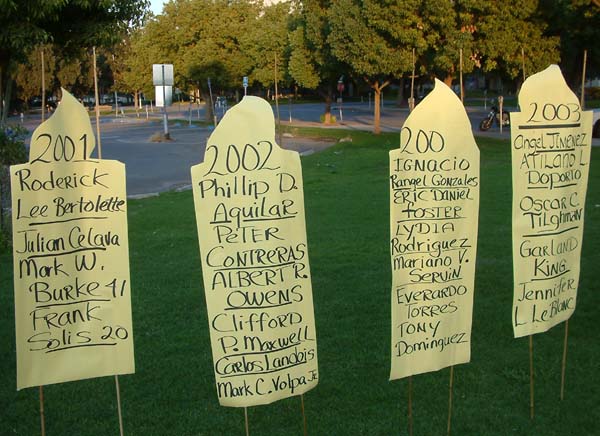 2001
Roderick
Lee Bertolette
Julian Celava
Mark W.
Burke 41
Frank
Solis 20
2002
Phillip D.
Aguilar
PETER
CONTRERAS
ALBERT R.
OWENS
Clifford
P. Maxwell
Carlos Landois
Mark C. Volpa Jr.
200
IGNACIO
Rangel Gonzales
ERIC DANIEL
FOSTER
LYDIA
Rodriguez
Mariano V.
SERVIN
EVERARDO
TORRES
TONY
Dominguez
2003
Angel JIMENEZ
ATTILANO L
DOPORTO
OSCAR C.
TILGHMAN
GARLAND
KING
Jennifer
L LeBlanc